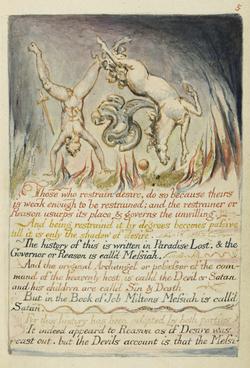 5
Those who restrain desire, do so because theirs
is weak enough to be restrained; and the restrainer or
Reason usurps its place & governs the unwilling.
And being restraind it by degrees becomes passive
till it is only the shadow of desire.
The history of this is written in Paradise Lost, & the
Governor or Reason is call'd Messiah.
And the original Archangel or possessor of the com-
mand of the heavenly host, is calld the Devil or Satan
and his children are call'd Sin & Death
But in the Book of Job Miltons Messiah is call'd
Satan.
For this history has been adopted by both parties
It indeed appear'd to Reason as if Desire was
cast out, but the Devils account is that the Messi-